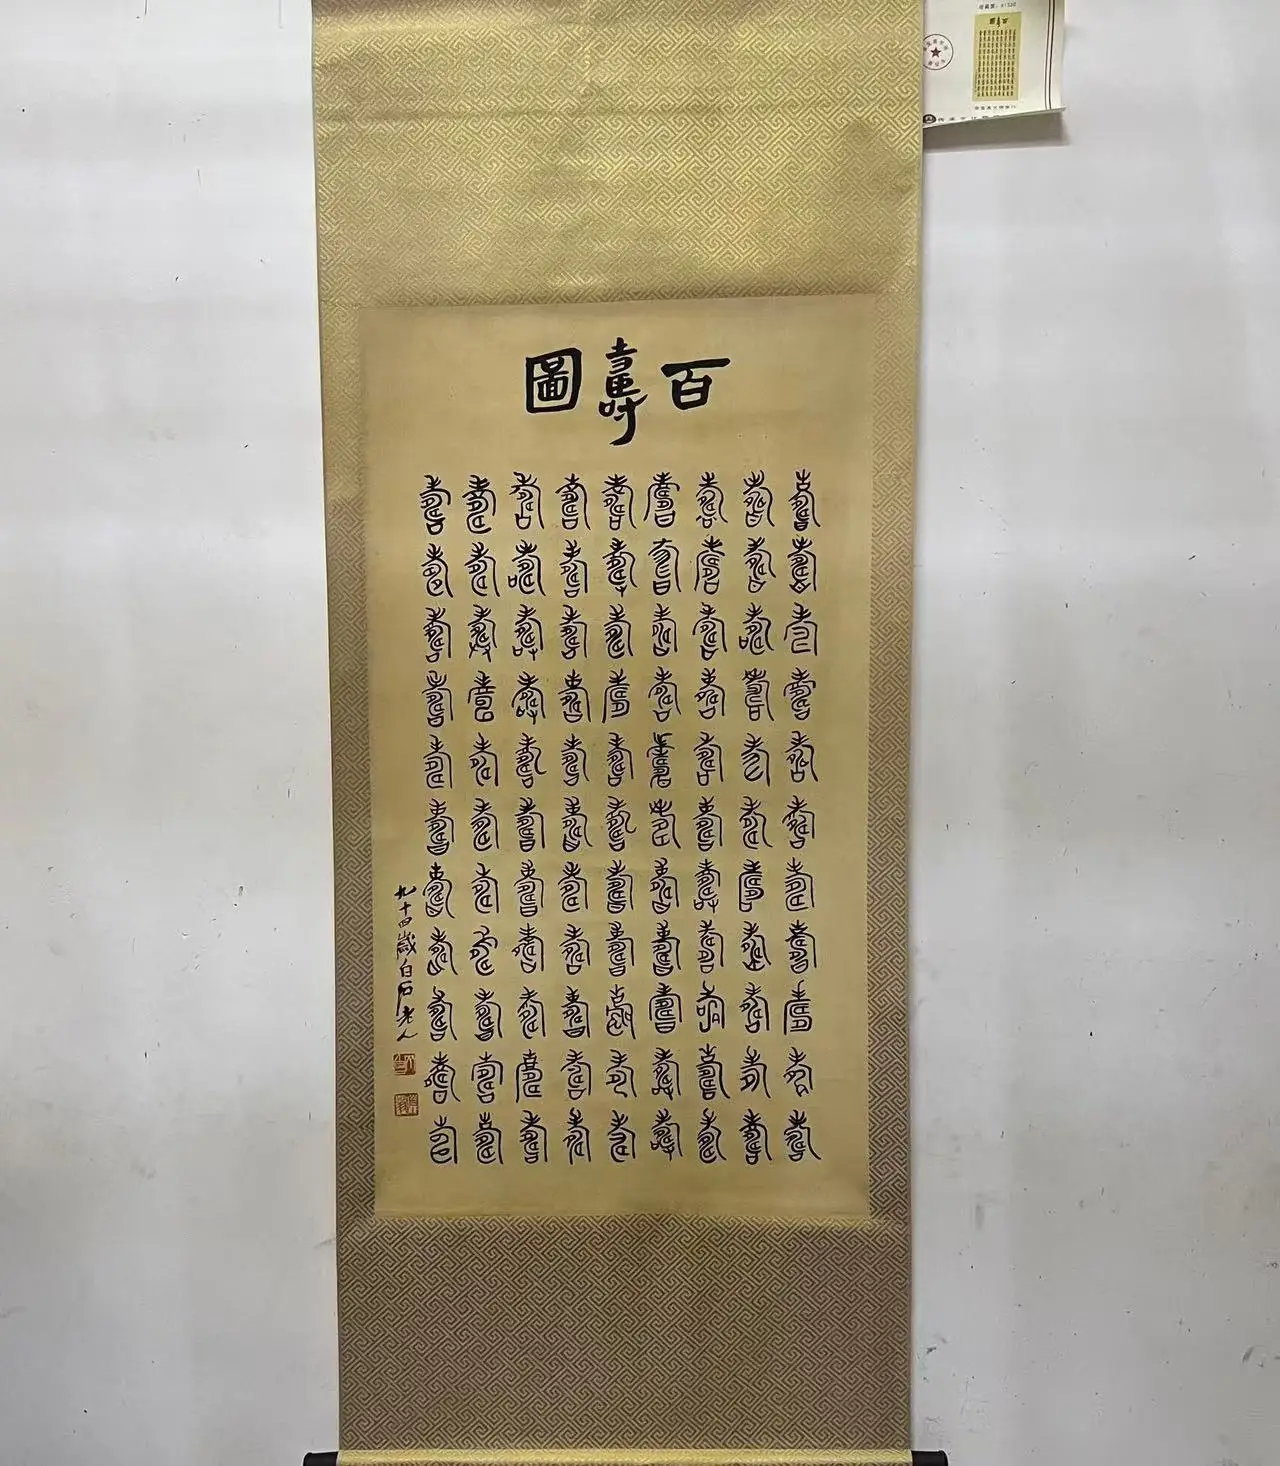 百壽圖
壽壽壽壽壽壽壽壽壽壽壽
壽壽壽壽壽壽壽壽壽壽壽
壽壽壽壽壽壽壽壽壽壽壽
壽壽壽壽壽壽壽壽壽壽壽
壽壽壽壽壽壽壽壽壽壽壽
壽壽壽壽壽壽壽壽壽壽壽
壽壽壽壽壽壽壽壽壽壽壽
壽壽壽壽壽壽壽壽壽壽壽
壽壽壽壽壽壽壽壽壽壽壽
九十四歲白石老人